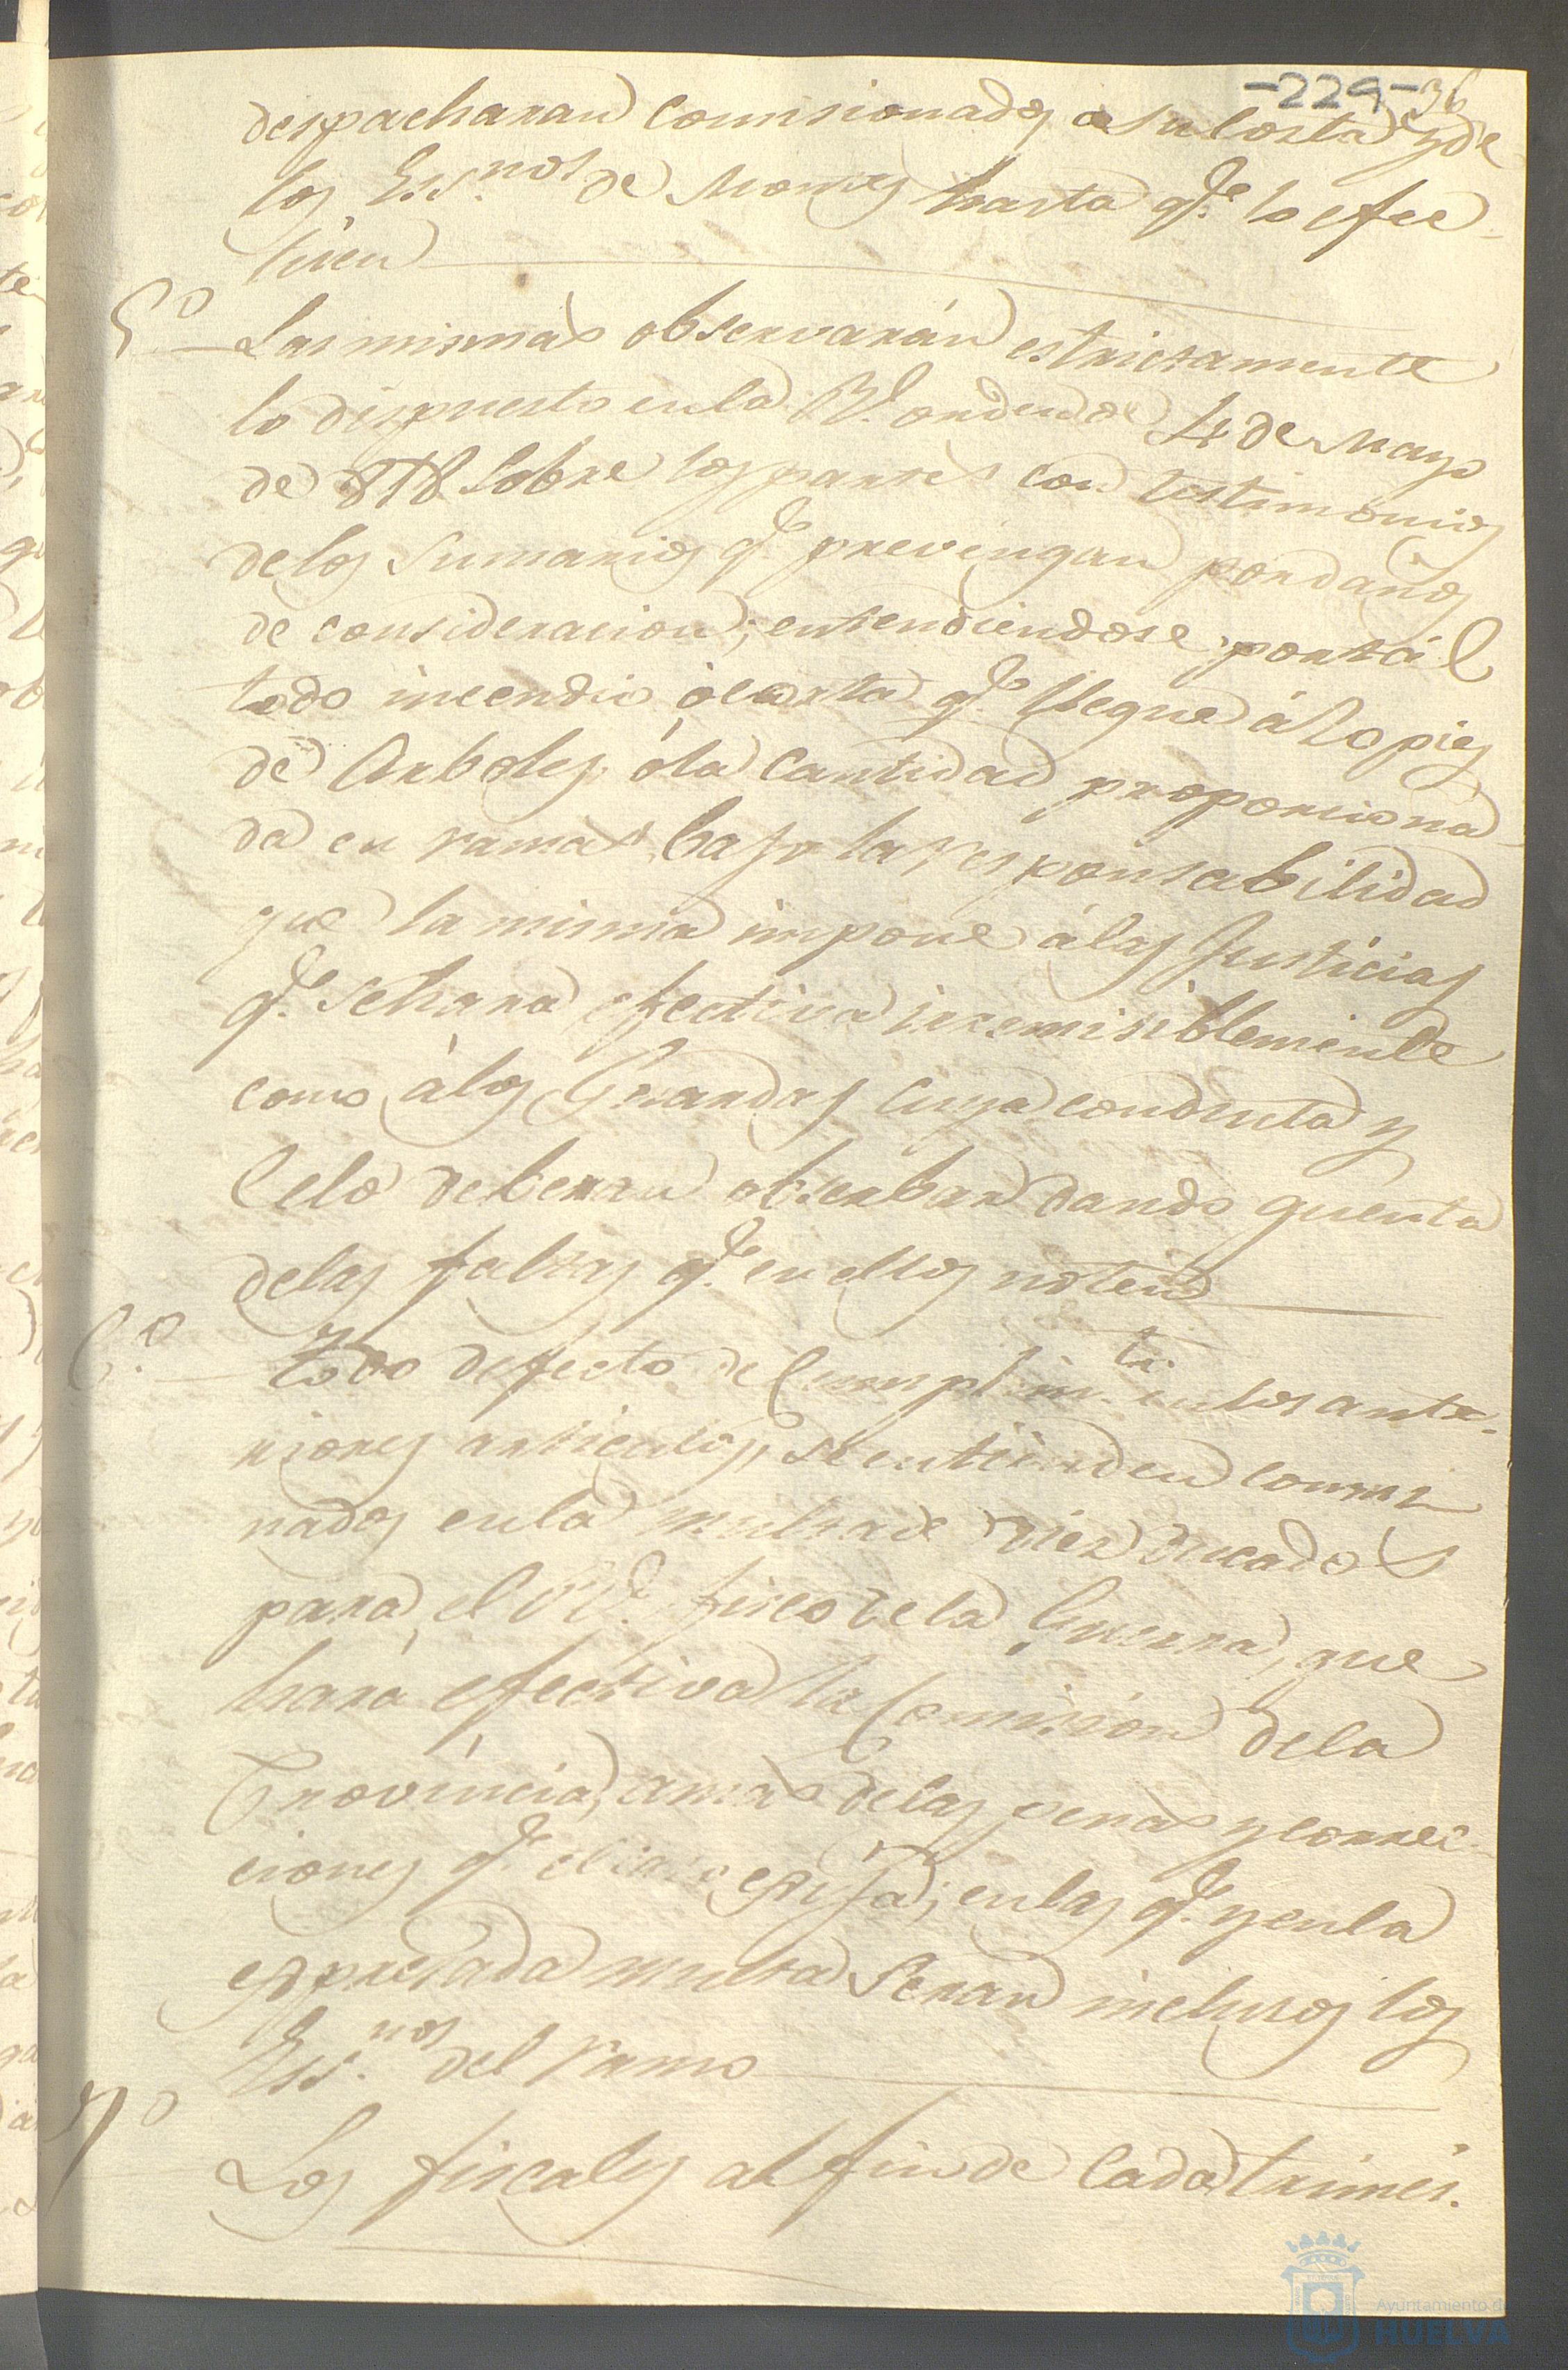 -229- 36
despacharan comisionados a su costa y de
los Ess.nos de Montes hasta q.e lo efec-
tuen
5º Las mismas observarán estrictamente
lo dispuesto en la Rl. orden de 4 de Mayo
de 818 sobre los partes con testimonios
de los sumarios q.e prevengan por daños
de consideracion; entendiendose por tál
todo incendio, ó corta q.e llegue á 20 pies
de Arboles, ó la cantidad proporciona-
da en ramas, bajo la responsabilidad
que la misma impone á las Justicias
q.e se hará efectiva irremisiblemente
como á los Guardas cuya conducta y
Celo deberan obserbar dando quenta
de las faltas q.e en ellos noten
6.º Todo defecto de Cumplim.to en los ante-
riores articulos, se entienden conmi-
nados en la multa de diez ducados
para el Rl. fisco de la Guerra, que
hará efectiva la Comision de la
Provincia, amas de las penas y correc-
ciones q.e el caso exija; en las q.e y en la
expresada multa seran inclusos los
Ess.nos del ramo
7º Los fiscales al fin de cada trimes.
Ayuntamiento de
HUELVA